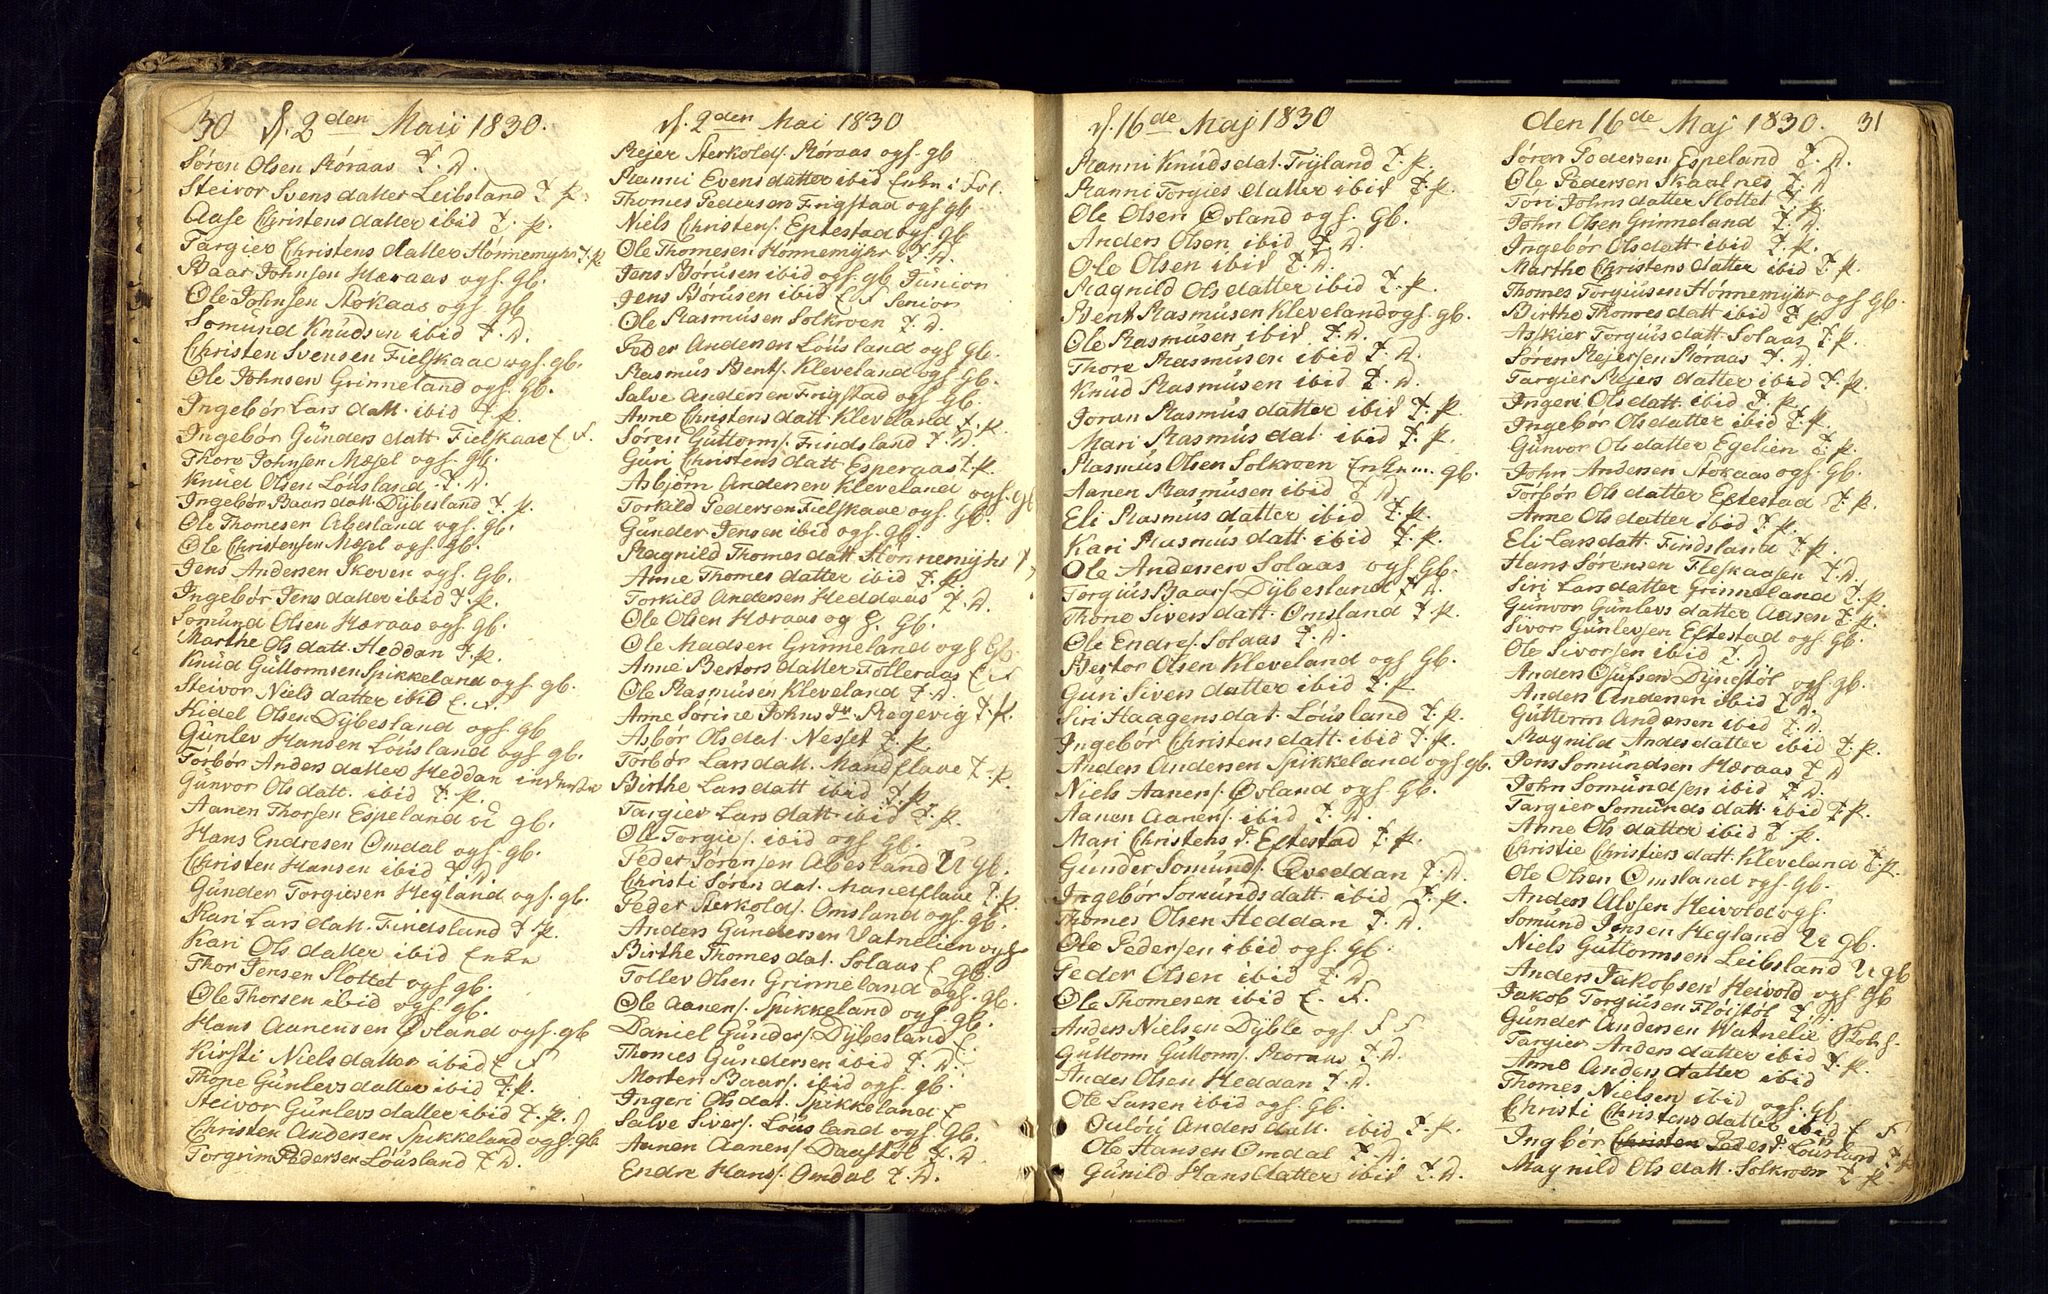 30 d. 2den Maii 1830.
Søren Olsen Røraas T. D.
Steivor Svens datter Leibsland T. p.
Aase Christens datter ibid T. p.
Targier Christens datter Hønnemyhr T. p
Baar Johnsen Høraas ogf. Gb.
Ole Johnsen Stokaas ogf. Gb
Somund Knudsen ibid T. D.
Christen Svensen Fielskaae ogf. gb.
Ole Johnsen Grinneland ogf. Gb.
Ingebør Lars datt. ibid T. p.
Ingebør Gunders datt. Fielskaae E F.
Thore Johnsen Mæsel ogf. gb.
Knud Olsen Løusland T. D.
Ingebør Baars datt. Dybesland T. p.
Ole Thomesen Abesland ogf. gb.
Ole Christensen Mæsel ogf. gb.
Jens Andersen Skoven ogf. Gb.
Ingebør Jens datter ibid T. p.
Somund Olsen Høraas ogf. gb.
Marthe Ols datt. Heddan T. p.
Knud Guttormsen Spikkeland ogf. gb.
Steivor Niels datter ibid E. F.
Kidel Olsen Dybesland ogf. Gb
Gunlev Hansen Løusland ogf. gb.
Torbør Anders datter Heddan
Gunvor Ols datt. ibid T. p.
Aanen Thorsen Espeland U gb.
Hans Endresen Omdal ogf. gb.
Christen Hansen ibid T. D.
Gunder Torgiesen Hegland ogf. gb.
Kari Lars datt. Findsland T. p.
Kari Ols datter ibid Enke
Thor Jensen Slottet ogf gb.
Ole Thorsen ibid ogf. gb.
Hans Aanensen Øvland ogf. gb
Kirsti Niels datter ibid E F
Thone Gunlevs datter ibid T. p.
Steivor Gunlevs datter ibid T. p.
Christen Andersen Spikkeland ogf. gb
Torgrim Pedersen Løusland T. D.
d. 2den Mai 1830
Rejer Sterkolds. Røraas ogf. gb
Ranni Evens datter ibid Enke i Fol.
Thomes Pedersen Frigstad ogf gb.
Niels Christens. Eftestad ogf. gb
Ole Thomesen Hønnemyhr T. D.
Jens Børusen ibid ogf gb Junior
Jens Børusen ibid E F Senior
Ole Rasmusen Solkroen T. D.
Peder Andersen Løusland ogf gb.
Rasmus Bents. Kleveland ogf gb.
Salve Andersen Frigstad ogf. gb.
Anne Christens datt. Kleveland T. p.
Søren Guttorms. Findsland T. D.
Guri Christens datt Esperaas T. p.
Asbjørn Andersen Kleveland ogf. gb
Torkild Pedersen Fielskaae ogf. Gb.
Gunder Jensen ibid ogf. gb.
Magnild Thomes datt. Hønnemyhr
Anne Thomes datter ibid T. p.
Torkild Andersen Heddaas T. D.
Ole Olsen Høraas og G. Gb.
Ole Madsen Grinneland ogf Gb
Anne Bertors datter Folleraas E F
Ole Rasmusen Kleveland T. D.
Anne Sørine Johns Dr Regevig T. p.
Asbør Ols dat. Nesset T. p.
Torbør Lars datt. Mandflave T. p.
Birthe Lars datt ibid T. p.
Targier Lars datt. ibid T. p.
Ole Torgies. ibid ogf Gb.
Peder Sørensen Abesland U gb.
Christi Søren dat. Mandflave T. p.
Peder Sterkolds. Omsland ogf. gb.
Anders Gundersen Vatnelien ogf
Birthe Thomes dat. Solaas E gb.
Tollev Olsen Grinneland ogf. gb.
Ole Aanens. Spikkeland ogf. gb.
Daniel Gunders. Dybesland E.
Thomes Gundersen ibid T. D.
Morten Baars. ibid ogf. gb.
Ingeri Ols dat. Spikkeland E
Salve Sivers. Løusland ogf. gb.
Aanen Aanens. Daastøl T. D.
Endre Hans. Omdal T. D.
d. 16de Maj 1830
Ranni Knuds dat. Trijland T. p.
Ranni Torgies datter ibid T. p.
Ole Olsen Øvland ogf. Gb.
Anders Olsen ibid T. D.
Ole Olsen ibid T. D.
Magnild Ols datter ibid T. p.
Bent Rasmusen Kleveland ogf. gb.
Ole Rasmusen ibid T. D.
Thore Rasmusen ibid T. D.
Knud Rasmusen ibid T. D.
Joran Rasmus datter ibid T. p.
Mari Rasmus dat. ibid T. p.
Rasmus Olsen Solkroen Enkem. gb.
Aanen Rasmusen ibid T D.
Eli Rasmus datter ibid T. p.
Kari Rasmus datt. ibid T. p.
Ole Andersen Solaas ogf Gb.
Torgius Baars. Dybesland T D.
Thone Sivens datt. Omsland T. p.
Ole Endres. Solaas T. D.
Bertor Olsen Kleveland ogf Gb.
Guri Sivens datter ibid T. p
Siri Haagens dat. Løusland T. p.
Ingebør Christens datt. ibid T. p.
Anders Andersen Spikkeland ogf gb.
Niels Aanens. Øvland ogf. Gb.
Aanen Aanens. ibid T. D.
Mari Christens D. Eftestad T. p.
Gunder Somunds. Qveddan T. D.
Ingebør Somunds datt. ibid T. p.
Thomes Olsen Heddan T. D.
Ole Pedersen ibid ogf. Gb.
Peder Olsen ibid T. D.
Ole Thomesen ibid E. F.
Anders Nielsen Dyble ogf. F F
Guttorm Guttorms. Røraas T. D.
Andes Olsen Heddan T. D.
Ole Larsen ibid ogf. Gb.
Oulou Anders datt. ibid T. p.
Ole Hansen Omdal T. D.
Gunild Hans datter ibid T. D.
den 16de Maj 1830. 31
Søren Pedersen Espeland T. D.
Ole Pedersen Skaalnes T. D
Tori Johns datter Slottet T. p.
John Olsen Grinneland T. D.
Ingebør Ols datt. ibid T. p.
Marthe Christens datter ibid T. p.
Thomes Torgiusen Hønnemyhr ogf Gb.
Birthe Thomes datt ibid T. p.
Askier Torgius datt. Solaas T. p.
Søren Rejersen Røraas T. D.
Targier Rejers datter ibid T. p.
Ingeri Ols datt. ibid T. p.
Ingebør Ols datter ibid T. p.
Gunvor Ols datter Egelien T. p.
John Andersen Stokaas ogf. Gb.
Torbør Ols datter Eftestad T. p.
Anne Ols datter ibid T. p.
Eli Lars datt. Findsland T. p.
Hans Sørensen Fleskaasen T. D.
Siri Lars datter Grinneland T. p.
Gunvor Gunlevs datter Aasen T. p.
Sivor Gunlevsen Eftestad ogf. Gb.
Ole Sivorsen ibid T. D.
Anders Olufsen Dynestøl ogf. gb.
Anders Andersen ibid T. D.
Guttorm Andersen ibid T. D.
Magnild Andes datter ibid T. p.
Jens Somundsen Høraas T. D
John Somundsen ibid T. D.
Targier Somunds datt. ibid T. p.
Anne Ols datter ibid T. p.
Christie Christiers datt. Kleveland T. p.
Ole Olsen Omsland ogf. Gb.
Anders Alvsen Heivold ogf.
Somund Jensen Hegland U gb.
Niels Guttormsen Leibsland U gb
Anders Jakobsen Heivold ogf Gb
Jakob Torgiusen Fløistøl T. D.
Gunder Andersen Watnelie
Targier Anders datter ibid T. p.
Anne Anders datter ibid
Thomes Nielsen ibid ogf. Gb
Christi Christens datter ibid E F
Ingbør Christen Peders D. Løusland T p
Magnild Ols datt. Solkroen T. p.